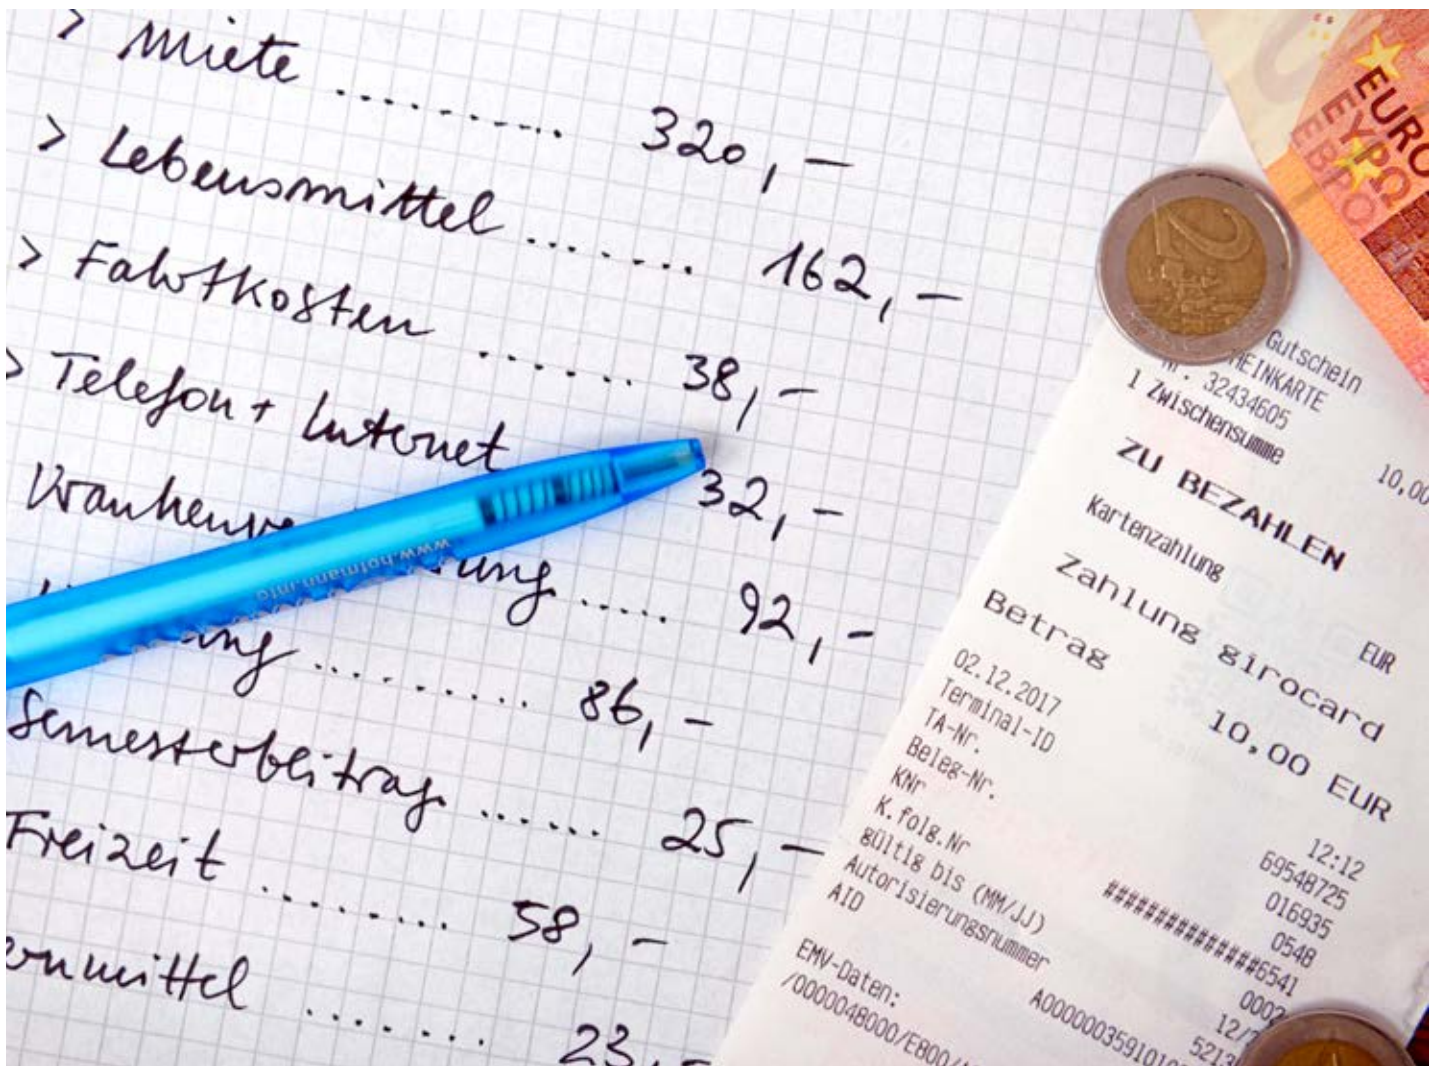 > Miete .......... 320,–
> Lebensmittel ....... 162,–
> Fahrtkosten ...... 38,–
> Telefon + Internet 32,–
.... 92,–
.......... 86,–
Semesterbeitrag ...... 25,–
Freizeit ........ 58,–
....... 23,–
www.hofmann.info
EURO
ΕΥΡΩ
ЕВРО
2
Gutschein
32434605
1 Zwischensumme 10,00
ZU BEZAHLEN
Kartenzahlung EUR
Zahlung girocard
Betrag 10,00 EUR
02.12.2017 12:12
Terminal-ID 69548725
TA-Nr. 016935
Beleg-Nr. 0548
KNr ##############6541
K.folg.Nr 0002
gültig bis (MM/JJ) 12/
Autorisierungsnummer 5213
AID
EMV-Daten:
/0000048000/E800/